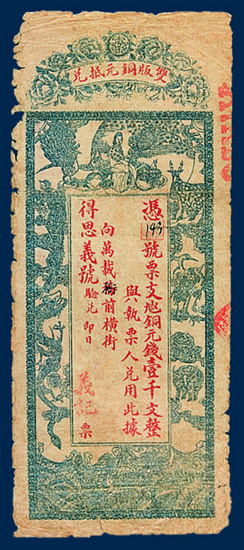 雙版銅元抵兌
憑193號票支銅元錢壹千文整
與執票人兌用此據
向萬載前橫街
得思義號驗兌即日
義記票